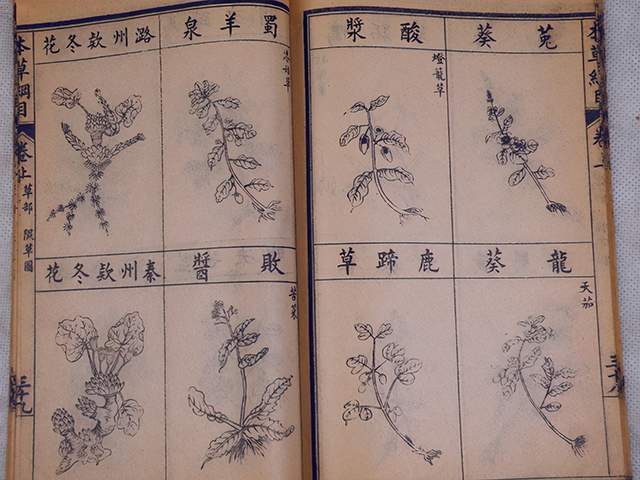 菟葵
酸漿
燈籠草
龍葵
天茄
鹿蹄草
蜀羊泉
潞州款冬花
敗醬
苦菜
秦州款冬花
本草綱目
卷上
草部
隰草圖